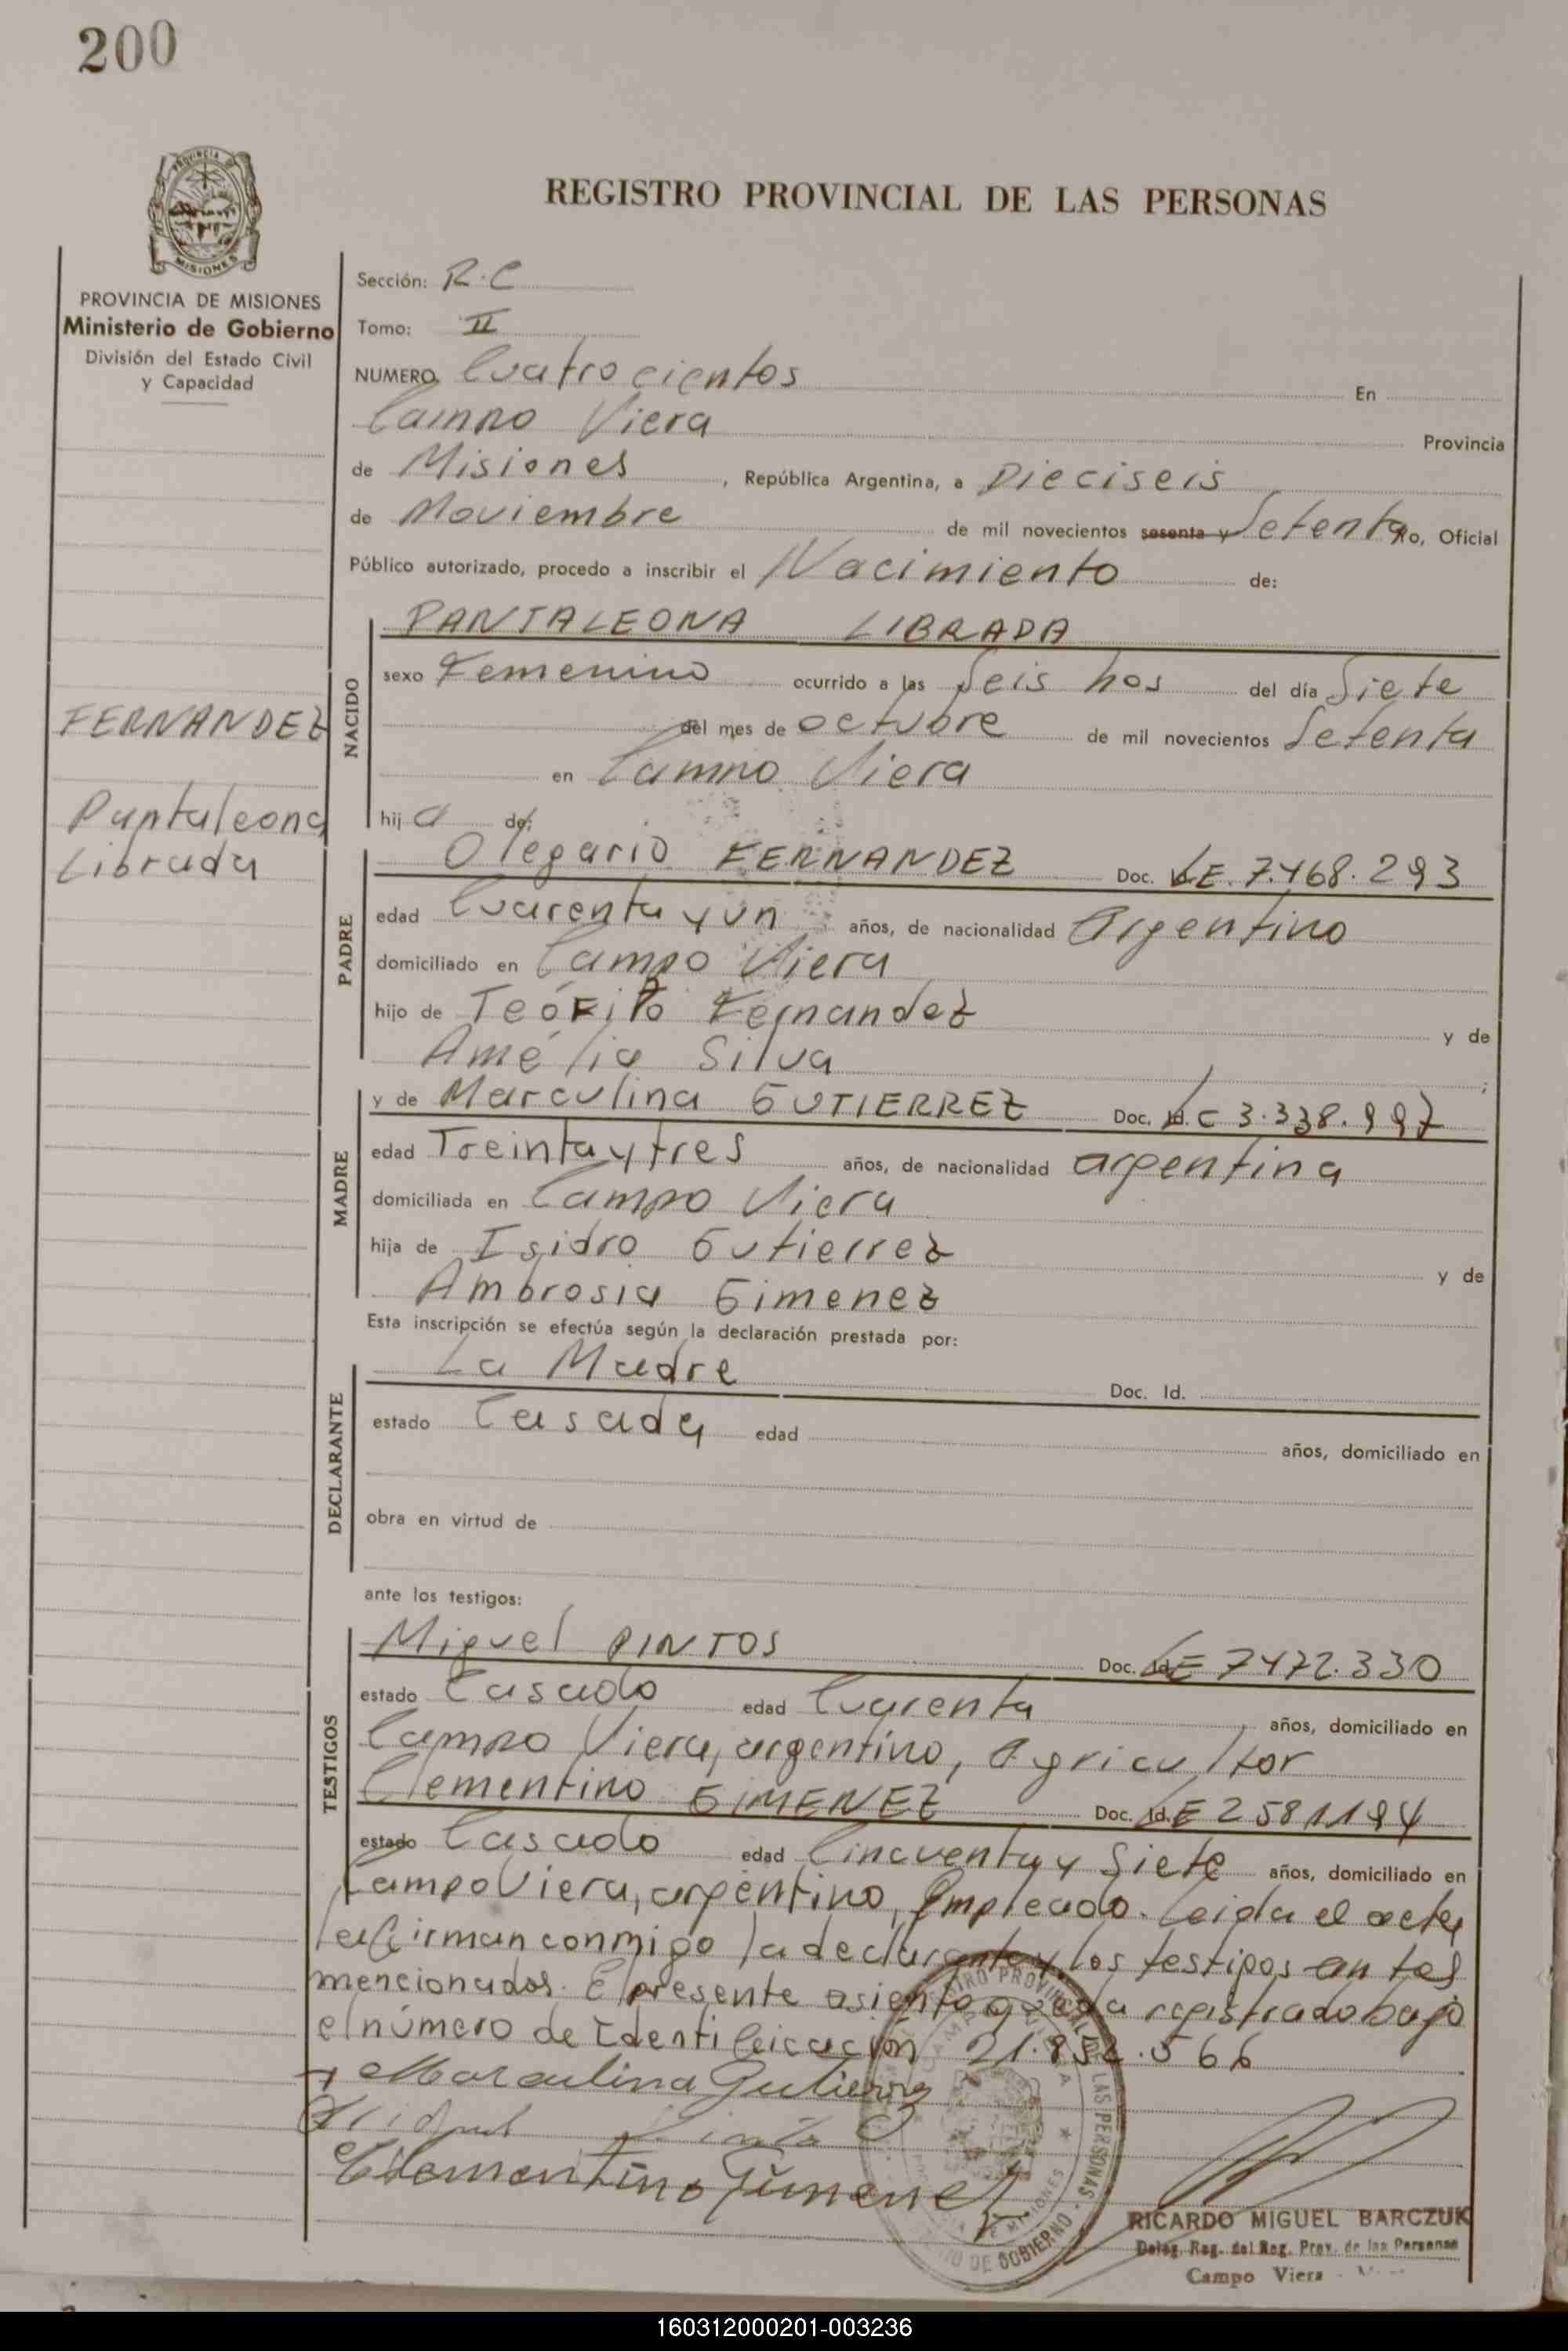 200
REGISTRO PROVINCIAL DE LAS PERSONAS
PROVINCIA DE MISIONES
Ministerio de Gobierno
División del Estado Civil
y Capacidad
Sección: R.C
Tomo: II
NUMERO Cuatrocientos En
Campo Viera Provincia
de Misiones, República Argentina, a Dieciseis
de Noviembre de mil novecientos sesenta y Setenta Yo, Oficial
Público autorizado, procedo a inscribir el Nacimiento de:
NACIDO
PANTALEONA LIBRADA
sexo Femenino ocurrido a las Seis hos del día Siete
FERNANDEZ
del mes de octubre de mil novecientos Setenta
en Campo Viera
Pantaleona
Librada
hij a de:
PADRE
Olegario FERNANDEZ Doc. LE. 7.468.293
edad Cuarenta y un años, de nacionalidad Argentino
domiciliado en Campo Viera
hijo de Teófilo Fernandez y de
Amélia Silva ;
MADRE
y de Marculina GUTIERREZ Doc. Id. LC 3.338.997
edad Treinta y tres años, de nacionalidad argentina
domiciliada en Campo Viera
hija de Isidro Gutierrez y de
Ambrosia Gimenez
Esta inscripción se efectúa según la declaración prestada por:
DECLARANTE
La Madre Doc. Id.
estado Casada edad años, domiciliado en
obra en virtud de
ante los testigos:
TESTIGOS
Miguel PINTOS Doc. Id. LE 7472.330
estado Casado edad Cuarenta años, domiciliado en
Campo Viera, argentino, Agricultor
Clementino GIMENEZ Doc. Id. LE 2581194
estado Casado edad Cincuenta y Siete años, domiciliado en
Campo Viera, argentino, Empleado. Leida el acta
la firman conmigo la declarante y los testigos antes
mencionados. El presente asiento queda registrado bajo
el número de Identificación 21.852.566
Marculina Gutierrez
Clementino Jimenez
RICARDO MIGUEL BARCZUK
Deleg. Reg. del Reg. Prov. de las Personas
Campo Viera
160312000201-003236